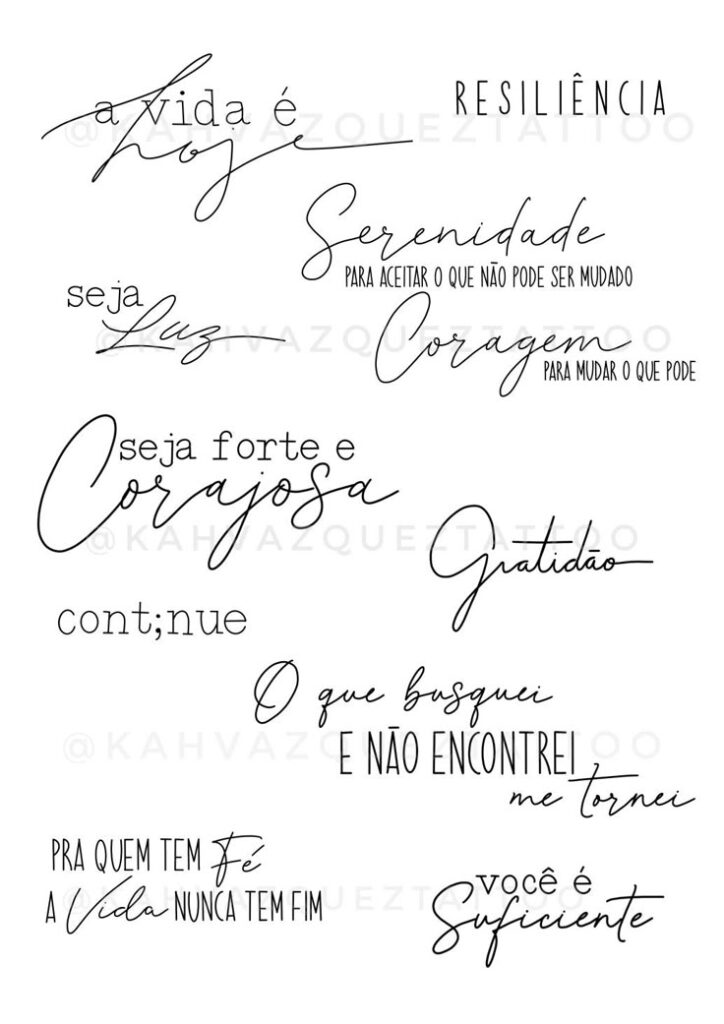 a vida é
hoje
RESILIÊNCIA
@KAHVAZQUEZTATTOO
Serenidade
PARA ACEITAR O QUE NÃO PODE SER MUDADO
seja
Luz
Coragem
PARA MUDAR O QUE PODE
@KAHVAZQUEZTATTOO
seja forte e
Corajosa
@KAHVAZQUEZTATTOO
Gratidão
cont;nue
O que busquei
E NÃO ENCONTREI
me tornei
@KAHVAZQUEZTATTOO
PRA QUEM TEM Fé
A Vida NUNCA TEM FIM
você é
Suficiente
@KAHVAZQUEZTATTOO